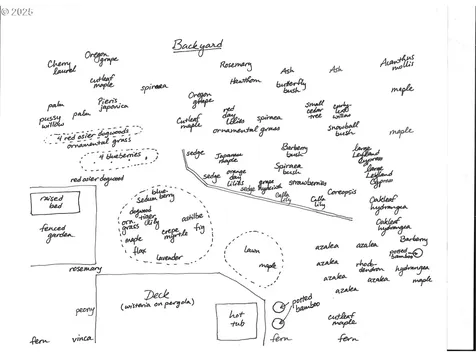 © 2025
Backyard
Cherry laurel
Oregon grape
Rosemary
Ash
Ash
Acanthus mollis
cutleaf maple
spiraea
Hawthorn
butterfly bush
maple
palm
Pieris japonica
Oregon grape
pussy willow
palm
Cutleaf maple
red day lilies
spiraea
small cedar tree
curly willow
ornamental grass
snowball bush
maple
4 red osier dogwoods
ornamental grass
4 blueberries
sedge
Japanese maple
Barberry bush
large Leyland Cypress
red osier dogwood
sedge
orange day lilies
Spiraea bush
large Leyland Cypress
sedge
grape hyacinth
snowberries
Calla lily
Calla lily
Coreopsis
Oakleaf hydrangea
raised bed
fenced garden
blue
sedum
berry
dogwood
orn. grass
tiger lily
astilbe
crepe myrtle
fig
maple
flax
lavender
Oakleaf hydrangea
Lawn
maple
azalea
azalea
Barberry
potted bamboo
azalea
rhododendron
hydrangea
azalea
azalea
maple
azalea
rosemary
Deck
(wisteria on pergola)
peony
hot tub
potted bamboo
cutleaf maple
fern
vinca
fern
fern